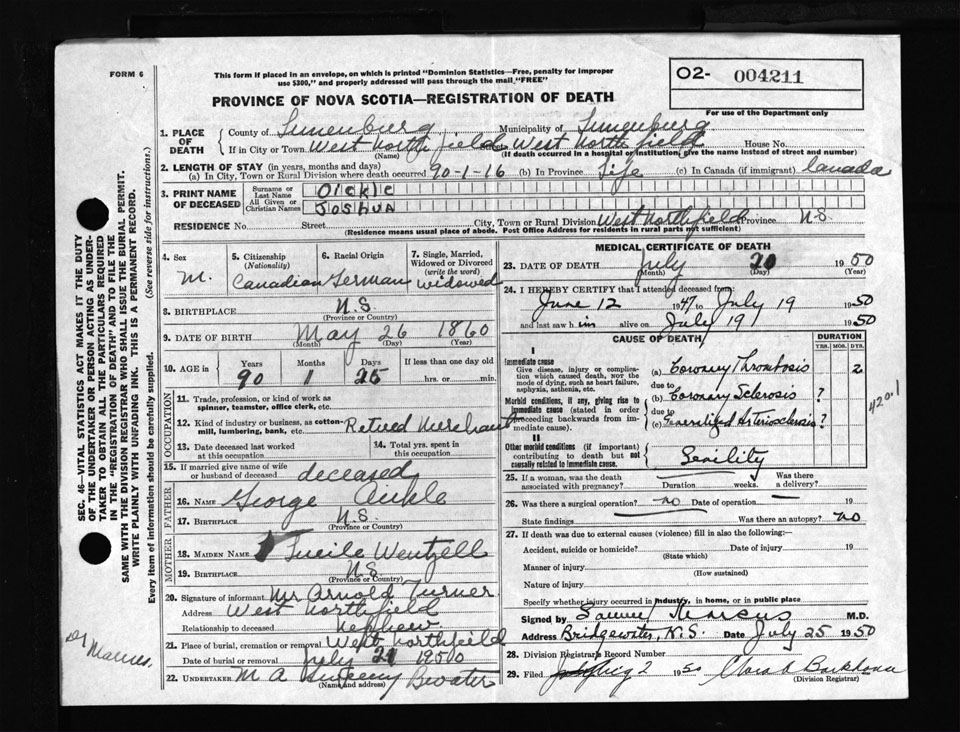 FORM 6
This form if placed in an envelope, on which is printed "Dominion Statistics—Free, penalty for improper
use $300," and properly addressed will pass through the mail "FREE"
O2- 004211
PROVINCE OF NOVA SCOTIA—REGISTRATION OF DEATH
For use of the Department only
1. PLACE OF DEATH
County of Lunenburg Municipality of Lunenburg
If in City or Town West Northfield Street West Northfield House No.
(Name) (If death occurred in a hospital or institution, give the name instead of street and number)
2. LENGTH OF STAY (in years, months and days)
(a) In City, Town or Rural Division where death occurred 90-1-16 (b) In Province Life (c) In Canada (if immigrant) Canada
3. PRINT NAME OF DECEASED
Surname or Last Name OICKLE
All Given or Christian Names JOSHUA
RESIDENCE No. Street City, Town or Rural Division West Northfield Province N.S.
(Residence means usual place of abode. Post Office Address for residents in rural parts not sufficient)
4. Sex M.
5. Citizenship (Nationality) Canadian
6. Racial Origin German
7. Single, Married, Widowed or Divorced (write the word) Widowed
8. BIRTHPLACE N.S.
(Province or Country)
9. DATE OF BIRTH May 26 1860
(Month) (Day) (Year)
10. AGE in Years 90 Months 1 Days 25 If less than one day old
hrs. or min.
OCCUPATION
11. Trade, profession, or kind of work as
spinner, teamster, office clerk, etc.
12. Kind of industry or business, as cotton-
mill, lumbering, bank, etc. Retired Merchant
13. Date deceased last worked
at this occupation
14. Total yrs. spent in
this occupation
15. If married give name of wife
or husband of deceased deceased
FATHER
16. NAME George
17. BIRTHPLACE N.S.
(Province or Country)
MOTHER
18. MAIDEN NAME Lucile Wentzell
19. BIRTHPLACE N.S.
(Province or Country)
20. Signature of informant Mr Arnold Turner
Address West Northfield
Relationship to deceased Nephew
21. Place of burial, cremation or removal West Northfield
Date of burial or removal July 21 1950
22. UNDERTAKER M A Sweeny B.water
(Name and address)
MEDICAL CERTIFICATE OF DEATH
23. DATE OF DEATH July 20 1950
(Month) (Day) (Year)
24. I HEREBY CERTIFY that I attended deceased from:
June 12 1947 to July 19 1950
and last saw h im alive on July 19 1950
CAUSE OF DEATH
DURATION
YRS. MOS. DYS.
I
Immediate cause
Give disease, injury or complica-
tion which caused death, not the
mode of dying, such as heart failure,
asphyxia, asthenia, etc.
(a) Coronary Thrombosis 2
due to
Morbid conditions, if any, giving rise to
immediate cause (stated in order
proceeding backwards from im-
mediate cause).
(b) Coronary Sclerosis ?
due to
(c) Generalized Arteriosclerosis ?
420.1
II
Other morbid conditions (if important)
contributing to death but not
causally related to immediate cause.
Senility
25. If a woman, was the death
associated with pregnancy? Duration weeks. Was there
a delivery?
26. Was there a surgical operation? no Date of operation 19
State findings Was there an autopsy? no
27. If death was due to external causes (violence) fill in also the following:—
Accident, suicide or homicide? Date of injury 19
(State which)
Manner of injury
(How sustained)
Nature of injury
Specify whether injury occurred in industry, in home, or in public place
Signed by Samuel Marcus M.D.
Address Bridgewater, N.S. Date July 25 1950
28. Division Registrar's Record Number
29. Filed Aug 2 1950 Clara A Barkhouse
(Division Registrar)
SEC. 46—VITAL STATISTICS ACT MAKES IT THE DUTY
OF THE UNDERTAKER OR PERSON ACTING AS UNDER-
TAKER TO OBTAIN ALL THE PARTICULARS REQUIRED
IN THE "REGISTRATION OF DEATH" AND TO FILE THE
SAME WITH THE DIVISION REGISTRAR WHO SHALL ISSUE THE BURIAL PERMIT.
WRITE PLAINLY WITH UNFADING INK. THIS IS A PERMANENT RECORD.
Every item of information should be carefully supplied. (See reverse side for instructions.)